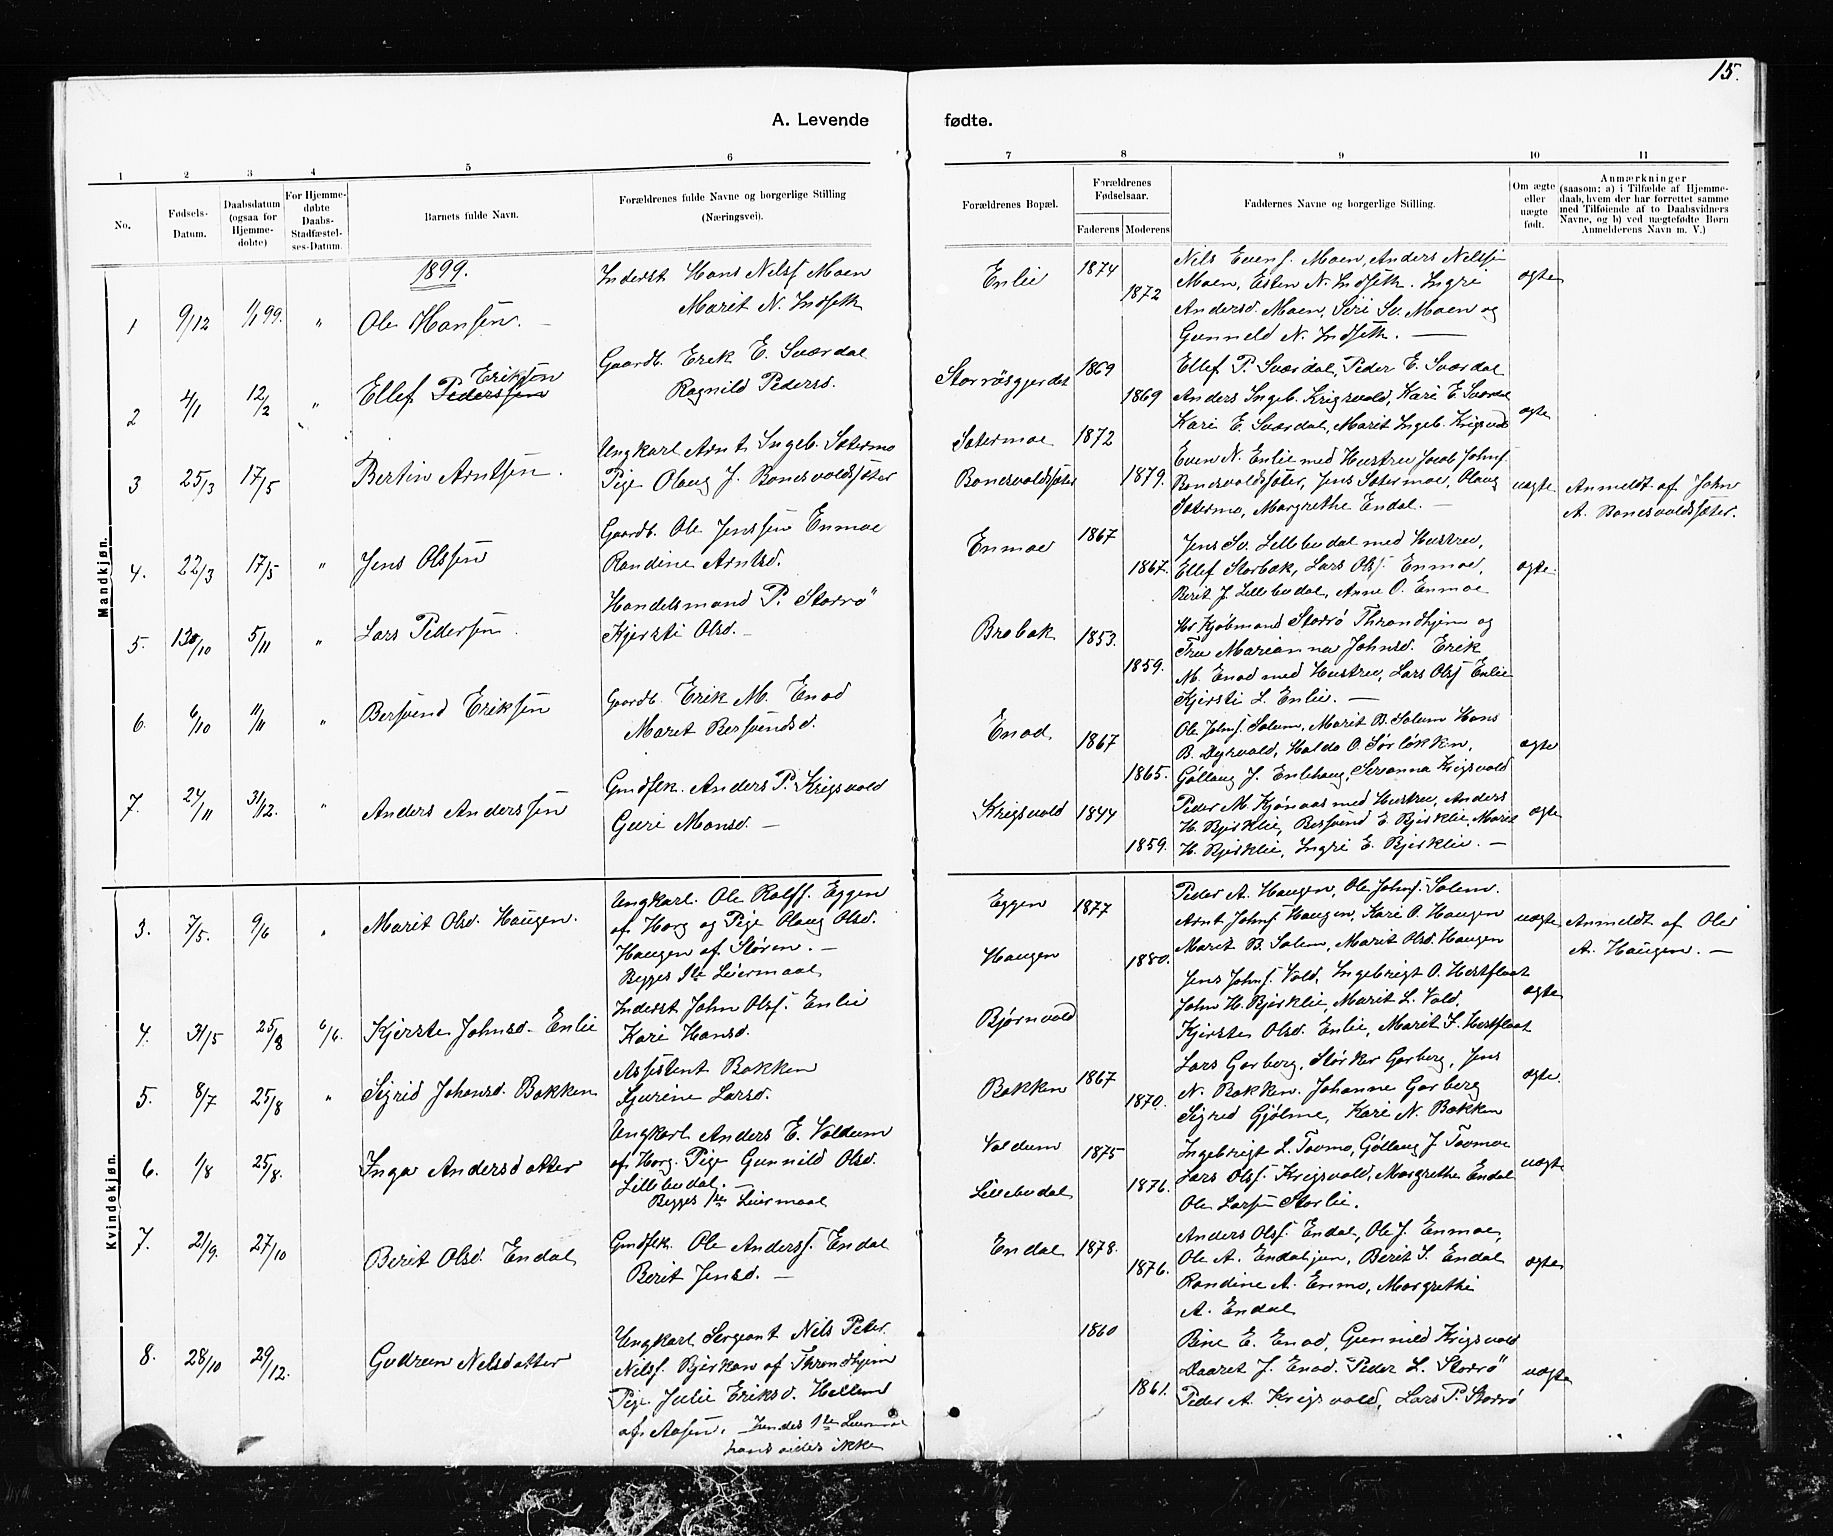 15.
A. Levende fødte.
1 2 3 4 5 6 7 8 9 10 11
No.
Fødsels-
Datum.
Daabsdatum
(ogsaa for
Hjemme-
døbte)
For Hjemme-
døbte
Daabs-
Stadfæstel-
ses-Datum.
Barnets fulde Navn.
Forældrenes fulde Navne og borgerlige Stilling
(Næringsvei).
Forældrenes Bopæl.
Forældrenes
Fødselsaar.
Faderens Moderens
Faddernes Navne og borgerlige Stilling.
Om ægte
eller
uægte
født.
Anmærkninger
(saasom: a) i Tilfælde af Hjemme-
daab, hvem der har forrettet samme
med Tilføiende af to Daabsvidners
Navne, og b) ved uægtefødte Børn
Anmelderens Navn m. V.)
Mandkjøn.
1899.
1 9/12 1/1 99. "
Ole Hansen. —
Inderst Hans Nilsf. Moen
Marit N. Indseth
Enlie
1874
1872
Nils Evens. Moen, Anders Nilssen
Moen, Esten N. Indseth. Ingri
Andersd. Moen, Siri Sv. Moen og
Gunneld N. Indseth. —
ægte
2 4/1 12/2 "
Eriksen
Ellef Pederssen
Gaardb. Erik E. Sværdal
Ragnild Peders.
Storrøsgjerdet
1869
1869
Ellef P. Sværdal, Peder E. Sværdal
Anders Ingeb. Krigsvold, Kari E. Sværdal
Kari E. Sværdal, Marit Ingeb. Krigsvold
ægte
3 25/3 17/5
Bertin Arntsen.
Ungkarl Arnt Ingeb. Sætermo
Pige Olaug J. Bonesvoldsæter
Sætermoe
Bonesvoldsæter
1872
1879.
Even N. Enlie med Hustru, Jacob Johnf.
Bonesvoldsæter, Jens Sætermoe, Olaug
Sætermo, Margrethe Endal. —
uægte
Anmeldt af John
A. Bonesvoldsæter.
4. 22/3 17/5 "
Jens Olssen
Gaardb. Ole Jenssen Enmoe
Randine Arntsd.
Enmoe
1867
1867.
Jens Sv. Lillebudal med Hustru,
Ellef Storbæk, Lars Olsf. Enmoe,
Berit J. Lillebudal, Anne O. Enmoe
ægte.
5. 5/11 "
Lars Pedersen.
Handelsmand P. Storrø
Kjersti Olsd. —
Brobak
1853.
1859.
Hr Kjøbmand Storrø Throndhjem og
Fru Marianna Johnsd. Erik
M. Enod med Hustru, Lars Olsf Enlie
Kjersti L. Enlie. —
6. 6/10 11/11 "
Bersvend Eriksen
Gaardb. Erik M. Enod
Maret Bersvendsd.
Enod.
1867
1865.
Ole Johnf. Solum, Marit B. Solum Hans
B. Dyrvold, Haldo O. Sørløkken,
Gøllaug J. Enlihaug, Servanna Krigsvold
ægte
7. 24/11 31/12. "
Anders Anderssen
Gmdfsk. Anders P. Krigsvold
Guri Monsd. —
Krigsvold
1844
1859.
Peder M. Kjønaas med Hustru, Anders
H. Bjerklie, Bersvend E. Bjerklie, Marit
H. Bjerklie, Ingri E. Bjerklie. —
ægte
Kvindekjøn.
3. 7/5. 9/6 "
Marit Olsd. Haugen.
Ungkarl. Ole Rolff. Eggen
af Horg og Pige Olaug Olsd.
Haugen af Støren. —
Begges 1ste Leiermaal
Eggen
Haugen
1877
1880.
Peder A. Haugen, Ole Johnf. Solem.
Arnt Johnf Haugen, Kari O. Haugen
Marit B. Solem, Marit Olsd. Haugen
uægte
Anmeldt af Ole
A. Haugen. —
4. 31/5 25/8 6/6.
Kjerste Johnsd. Enlie
Inderst John Olsf. Enlie
Kari Hansd.
Bjørnvold
Jens Johnf. Vold, Ingebrigt O. Hestflaat
John H. Bjerklie, Marit L. Vold,
Kjersten Olsd. Enlie, Marit J. Hestflaat
ægte
5. 8/7 25/8 "
Sigrid Johansd. Bakken
Assistent Bakken
Sjurine Larsd.
Bakken
1867
1870.
Lars Garberg, Størker Garberg, Jens
N. Bakken. Johanne Garberg
Sigrid Gjølme, Kari N. Bakken
ægte.
6. 1/8 25/8.
Inga Andersdatter
Ungkarl Anders E. Valdum
af Horg. Pige Gunnild Olsd.
Lillebudal.
Begges 1ste Leiermaal
Valdum
Lillebudal
1875
1876.
Ingebrigt L. Tovmo, Gøllaug J. Tovmoe
Lars Olsf. Krigsvold, Margrethe Endal
Ole Larsen Storlie.
uægte
7. 21/9. 27/10
Berit Olsd. Endal
Gmdfsk. Ole Andersf. Endal
Berit Jensd. —
Endal
1878.
1876.
Anders Olsf. Endal, Ole J. Enmoe,
Ole A. Endalsjen, Berit S. Endal
Randine A. Enmo, Margrethe
A. Endal
ægte
8. 28/10 29/12.
Gudrun Nelsdatter
Ungkarl Sergeant Nils Peter
Nilsf. Bjerkan af Throndhjem
Pige Julie Eriksd. Hellem
af Aasen. — Hendes 1ste Leiermaal
hans vides ikke
1860
1861.
Bine E. Enod, Gunnild Krigsvold
Maaret J. Enod. Peder L. Storrø
Peder A. Krigsvold, Lars P. Storrø
uægte